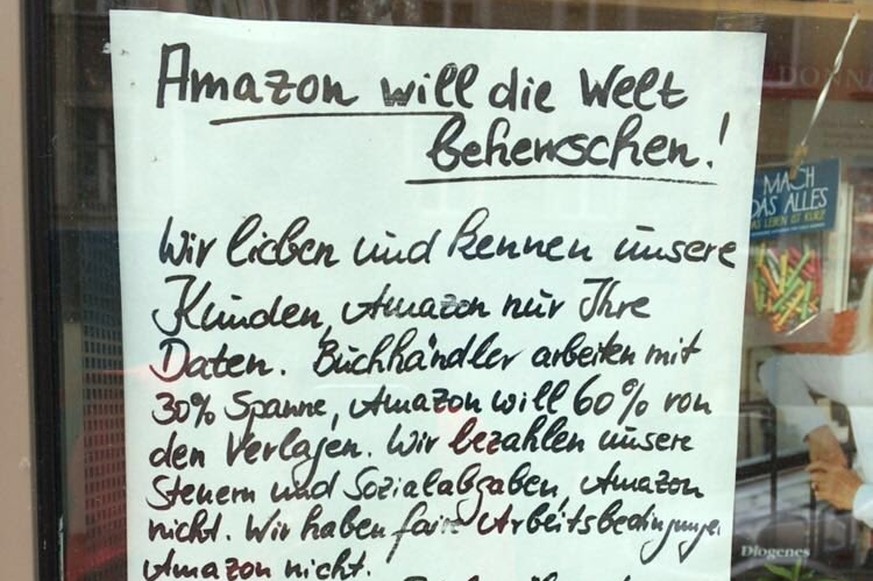 Amazon will die Welt
beherrschen!
Wir lieben und kennen unsere
Kunden, Amazon nur Ihre
Daten. Buchhändler arbeiten mit
30% Spanne, Amazon will 60% von
den Verlagen. Wir bezahlen unsere
Steuern und Sozialabgaben, Amazon
nicht. Wir haben faire Arbeitsbedingungen
Amazon nicht.
DONNA
MACH
DAS ALLES
DAS LEBEN IST KURZ
Diogenes